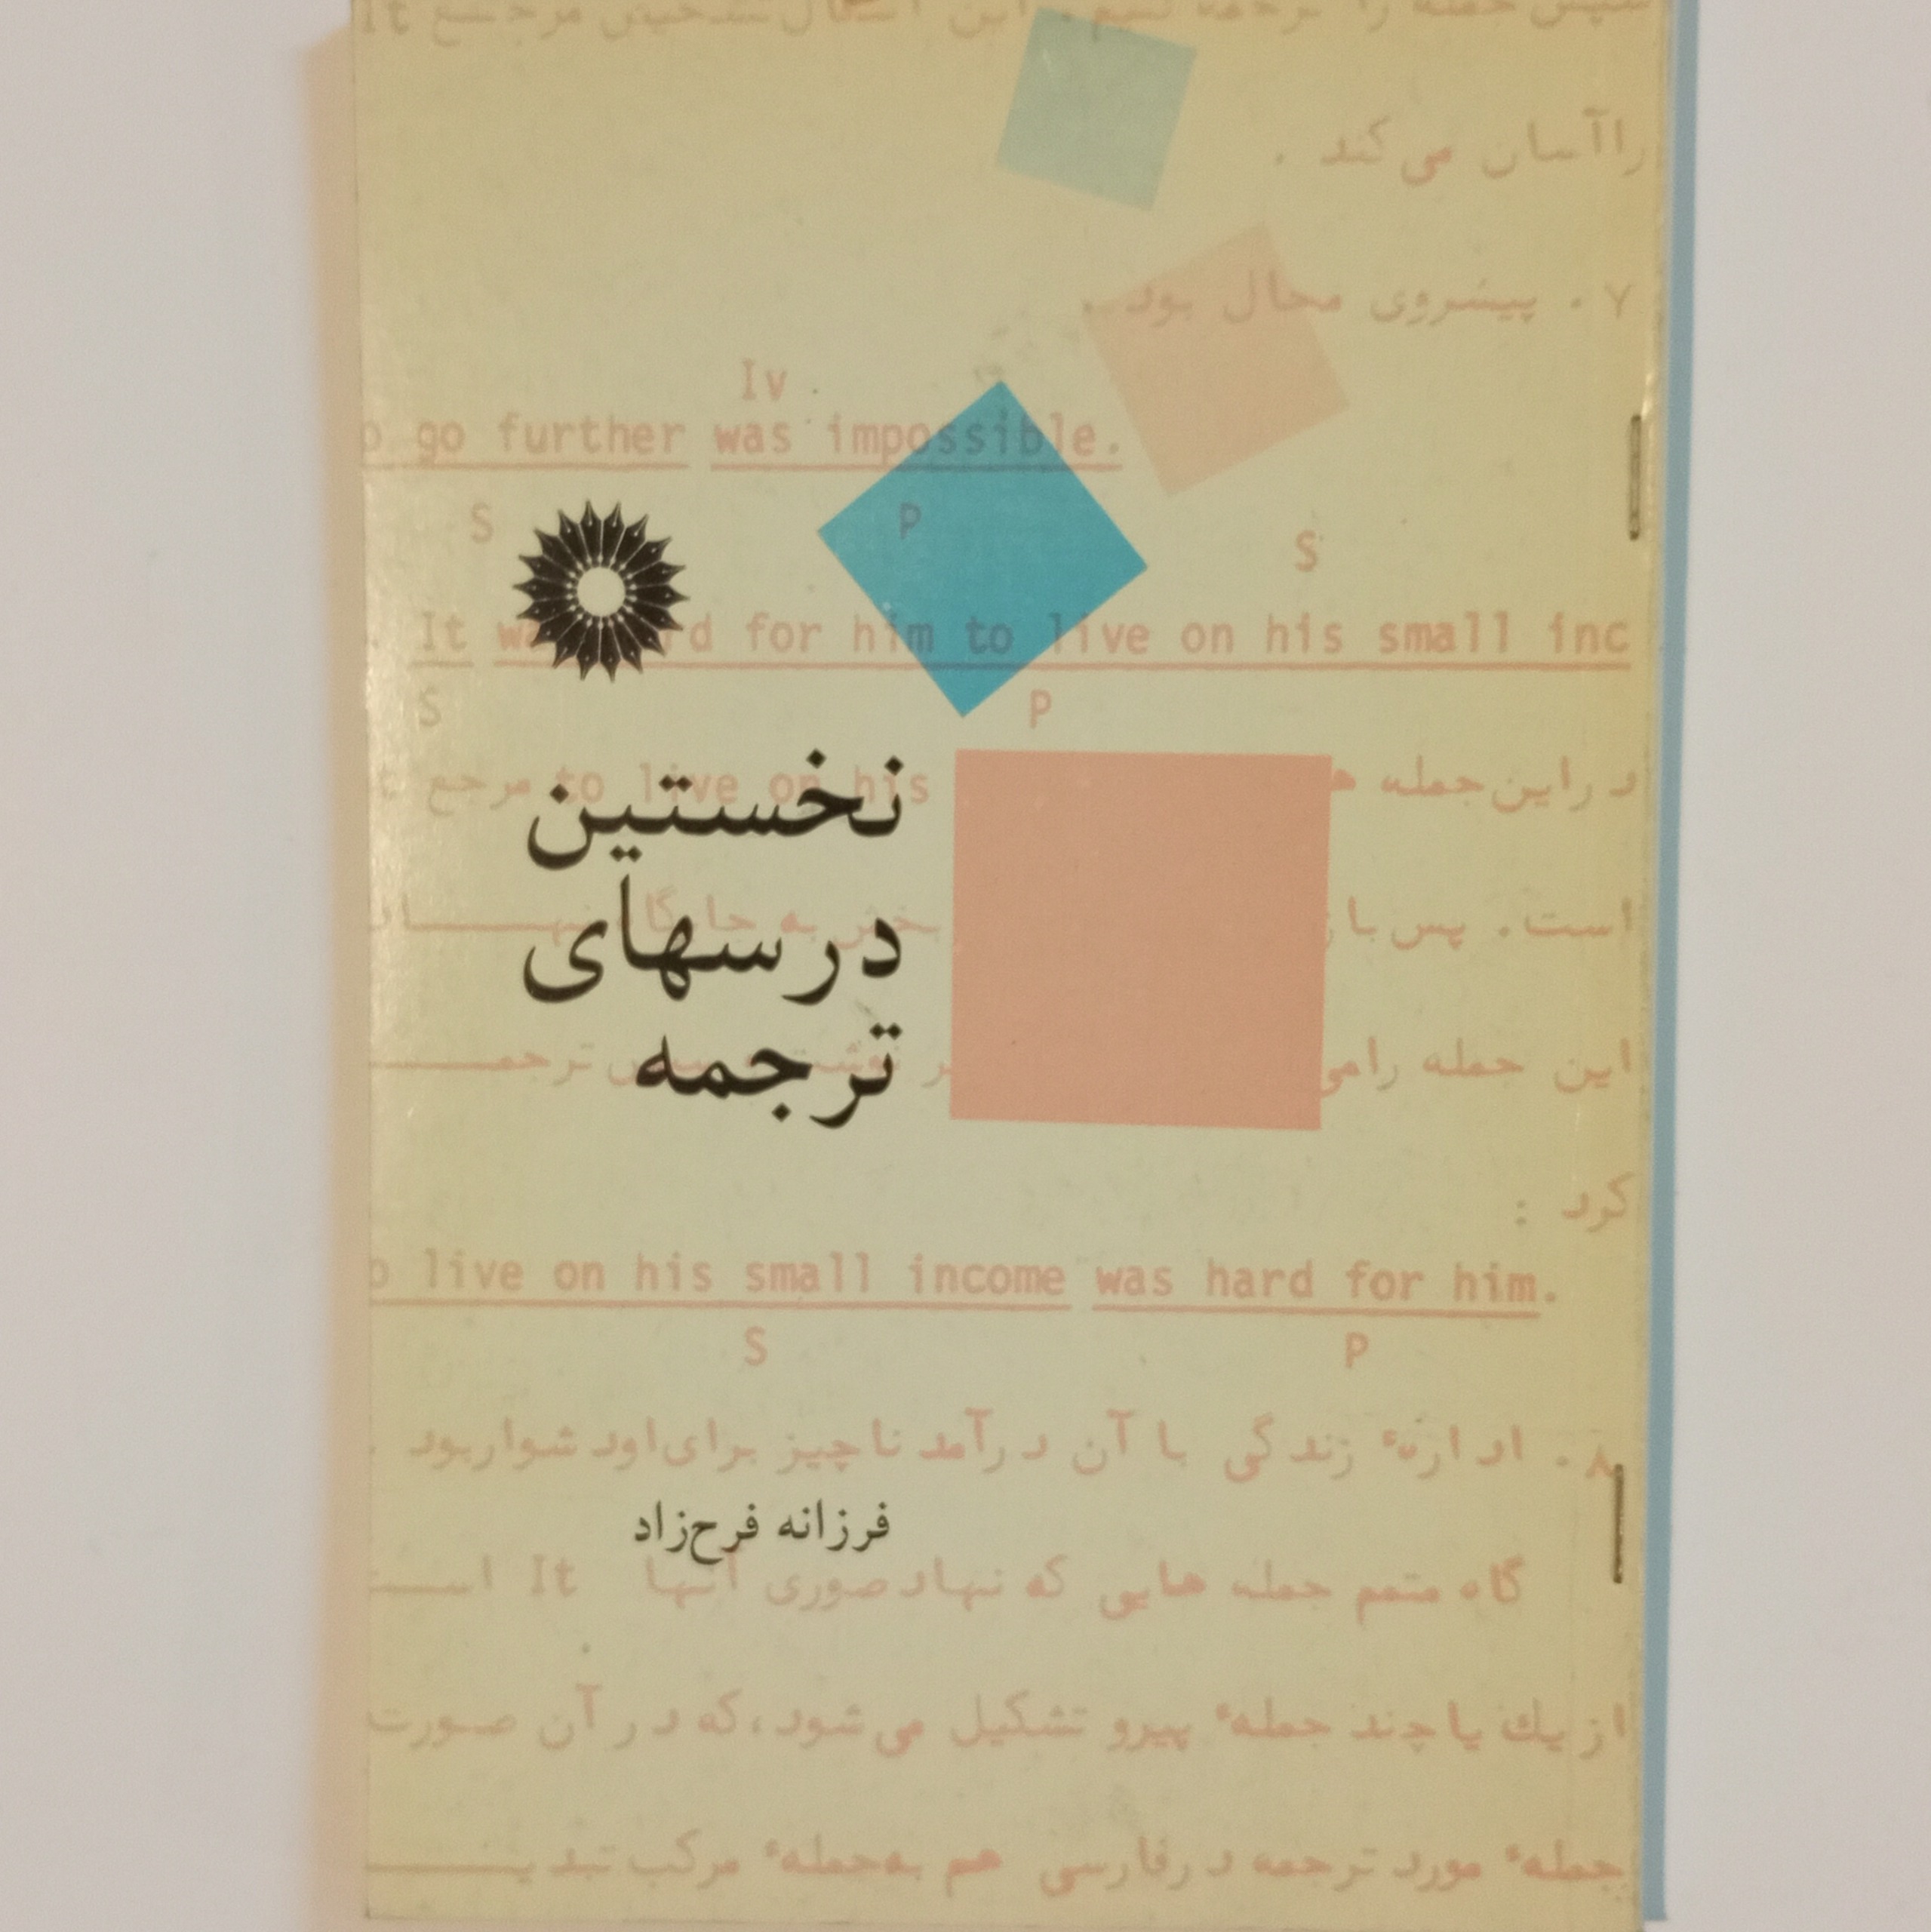 راآسان می کند .
۷ . پیشروی محال بود .
Iv
o go further was impossible.
S P
S
It wa rd for him to live on his small inc
S P
نخستین
درسهای
ترجمه
دراین جمله ه to live on his مرجع t
است. پس با
این جمله رامی ترجمـــــ
کرد :
o live on his small income was hard for him.
S P
۸ . ادارهٔ زندگی با آن درآمد ناچیز برای اود شواربود .
فرزانه فرح‌زاد
گاه متمم جمله هایی که نهاد صوری آنها It اســـت
از یك یا چند جملهٔ پیرو تشکیل می شود، که در آن صورت
جملهٔ مورد ترجمه در فارسی هم به جملهٔ مرکب تبدیـــــ